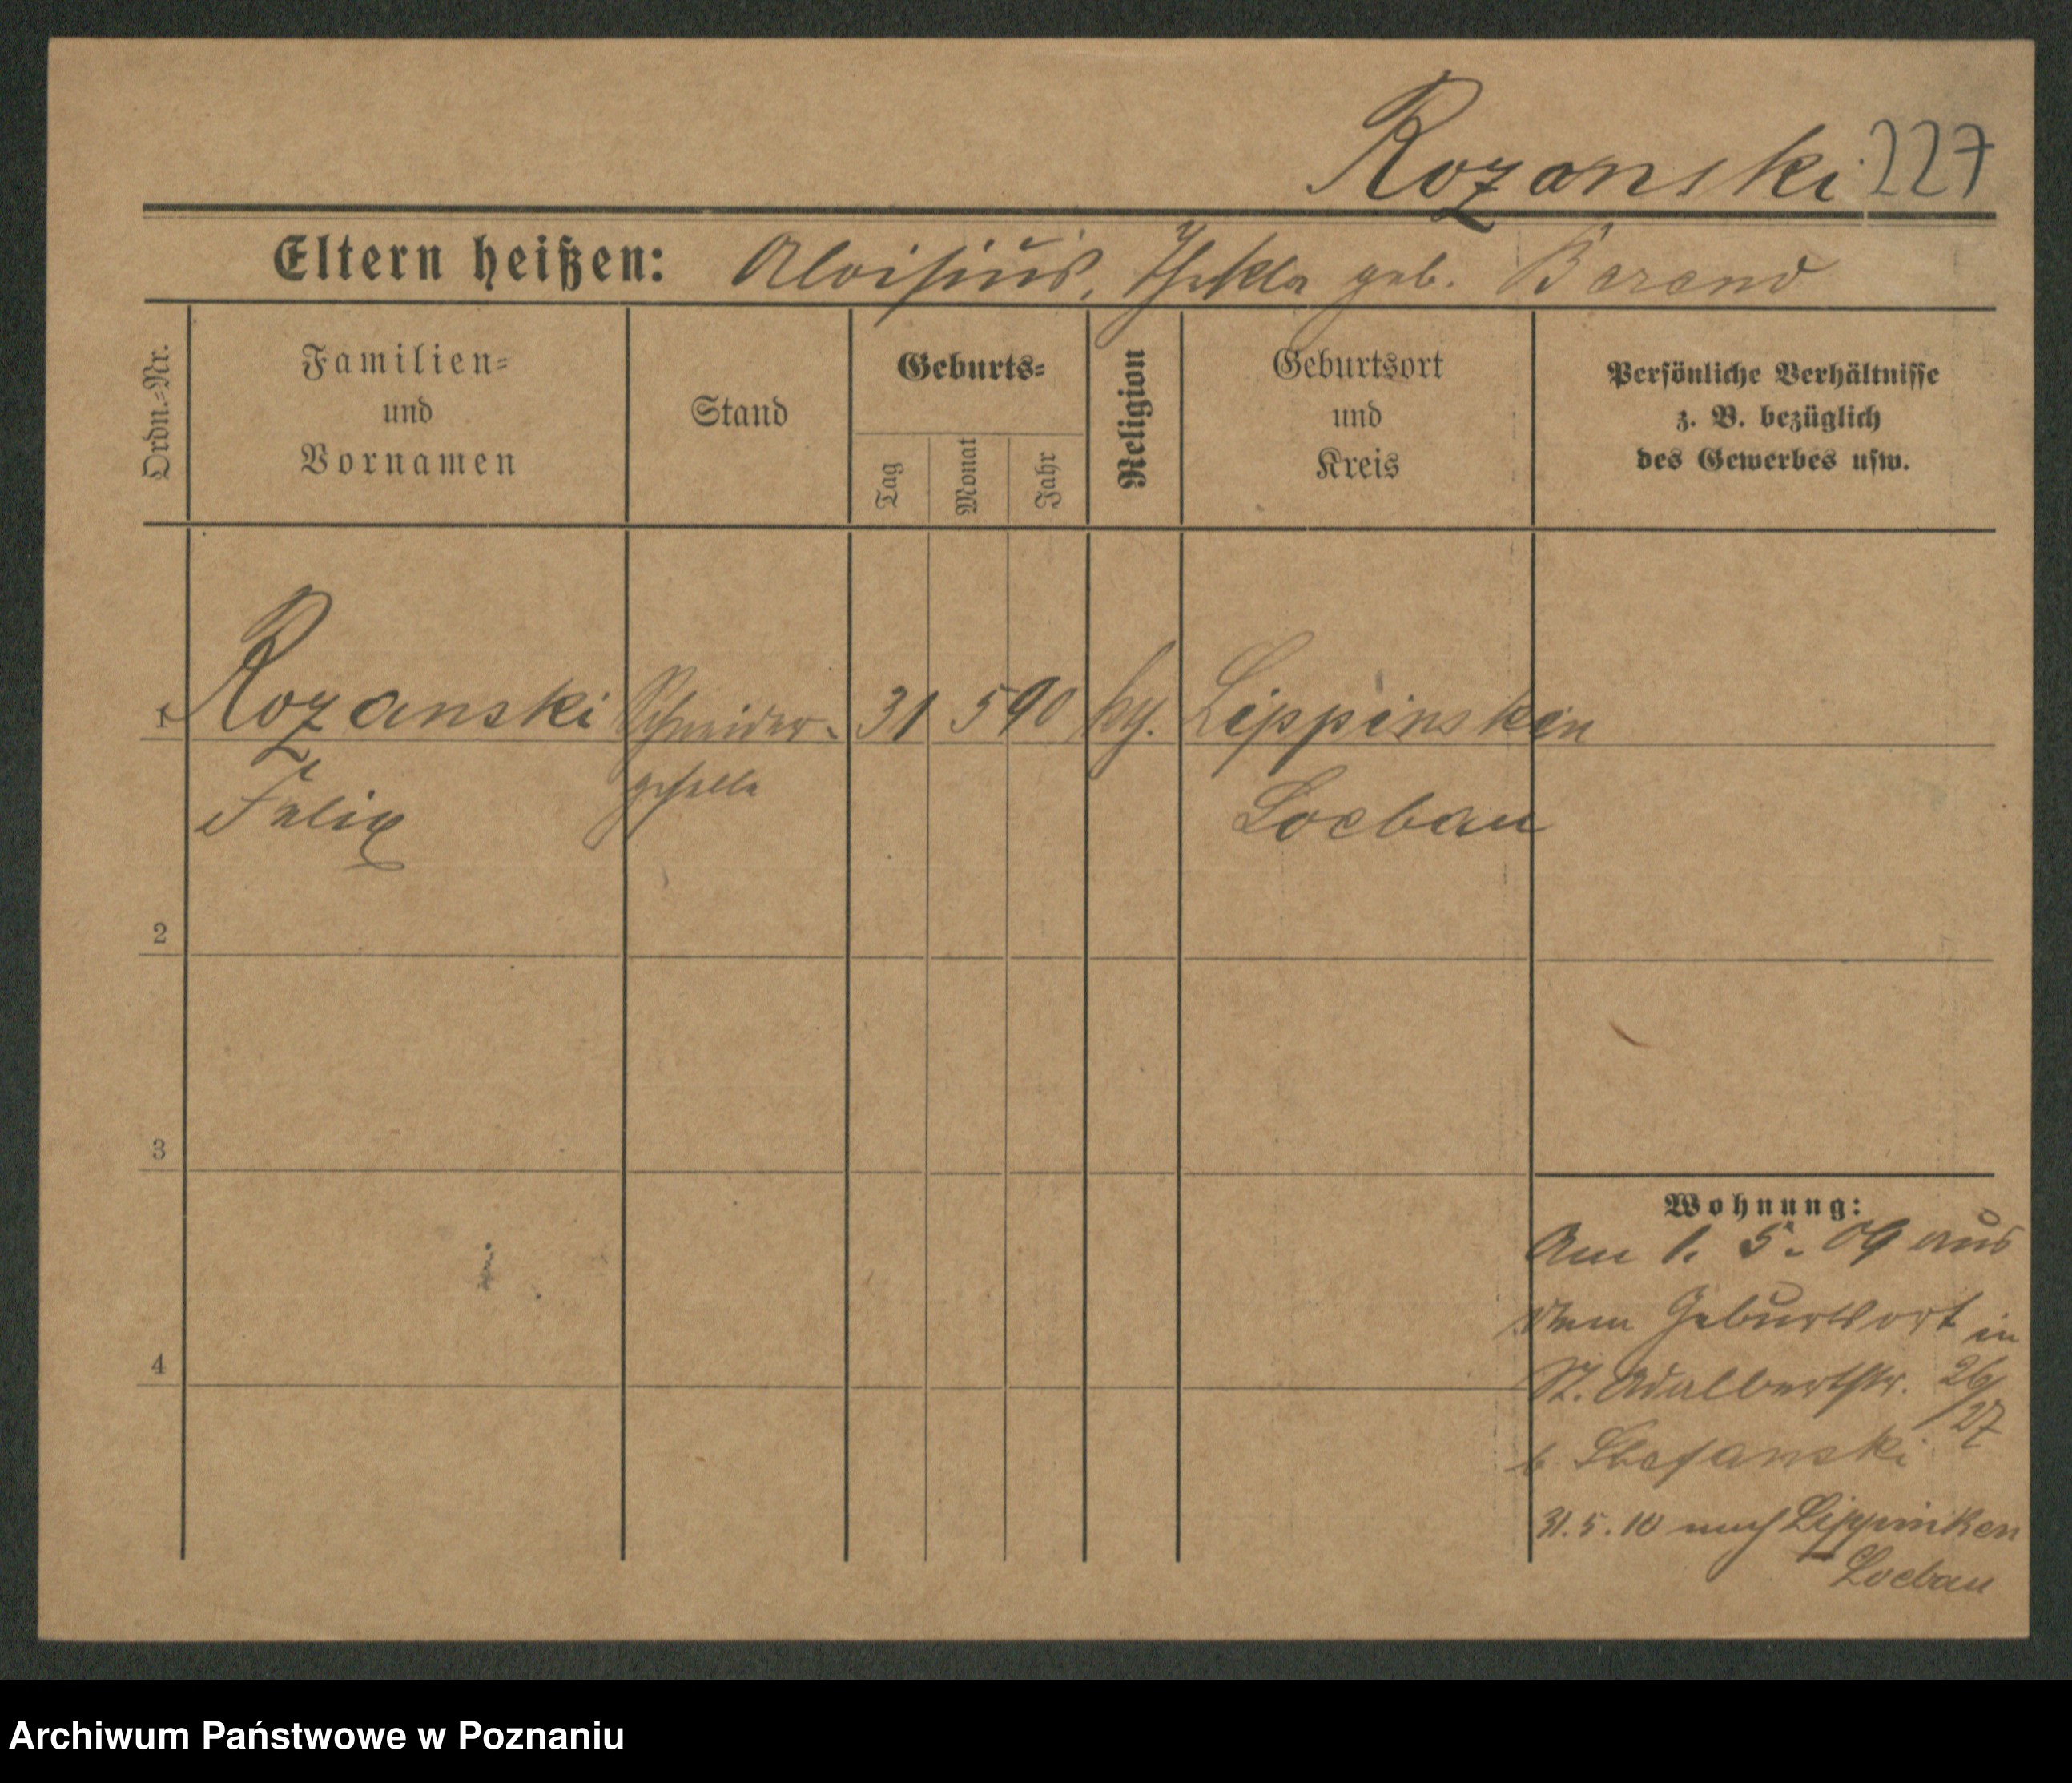 Rozanski 227
Eltern heißen: Aloisius, Thekla geb. Barand
Ordn.-Nr.
Familien- und Vornamen
Stand
Geburts-
Tag
Monat
Jahr
Religion
Geburtsort und Kreis
Persönliche Verhältnisse
z. B. bezüglich
des Gewerbes usw.
1 Rozanski Schneider- 31 5 90 Lippinsken
Felix geselle Loebau
2
3
Wohnung:
Am 1. 5. 09 aus
dem Geburtsort in
4
St. Adalbertstr. 26/27
b Stefanski
31.5.10 nach Lippinken
Loebau
Archiwum Państwowe w Poznaniu